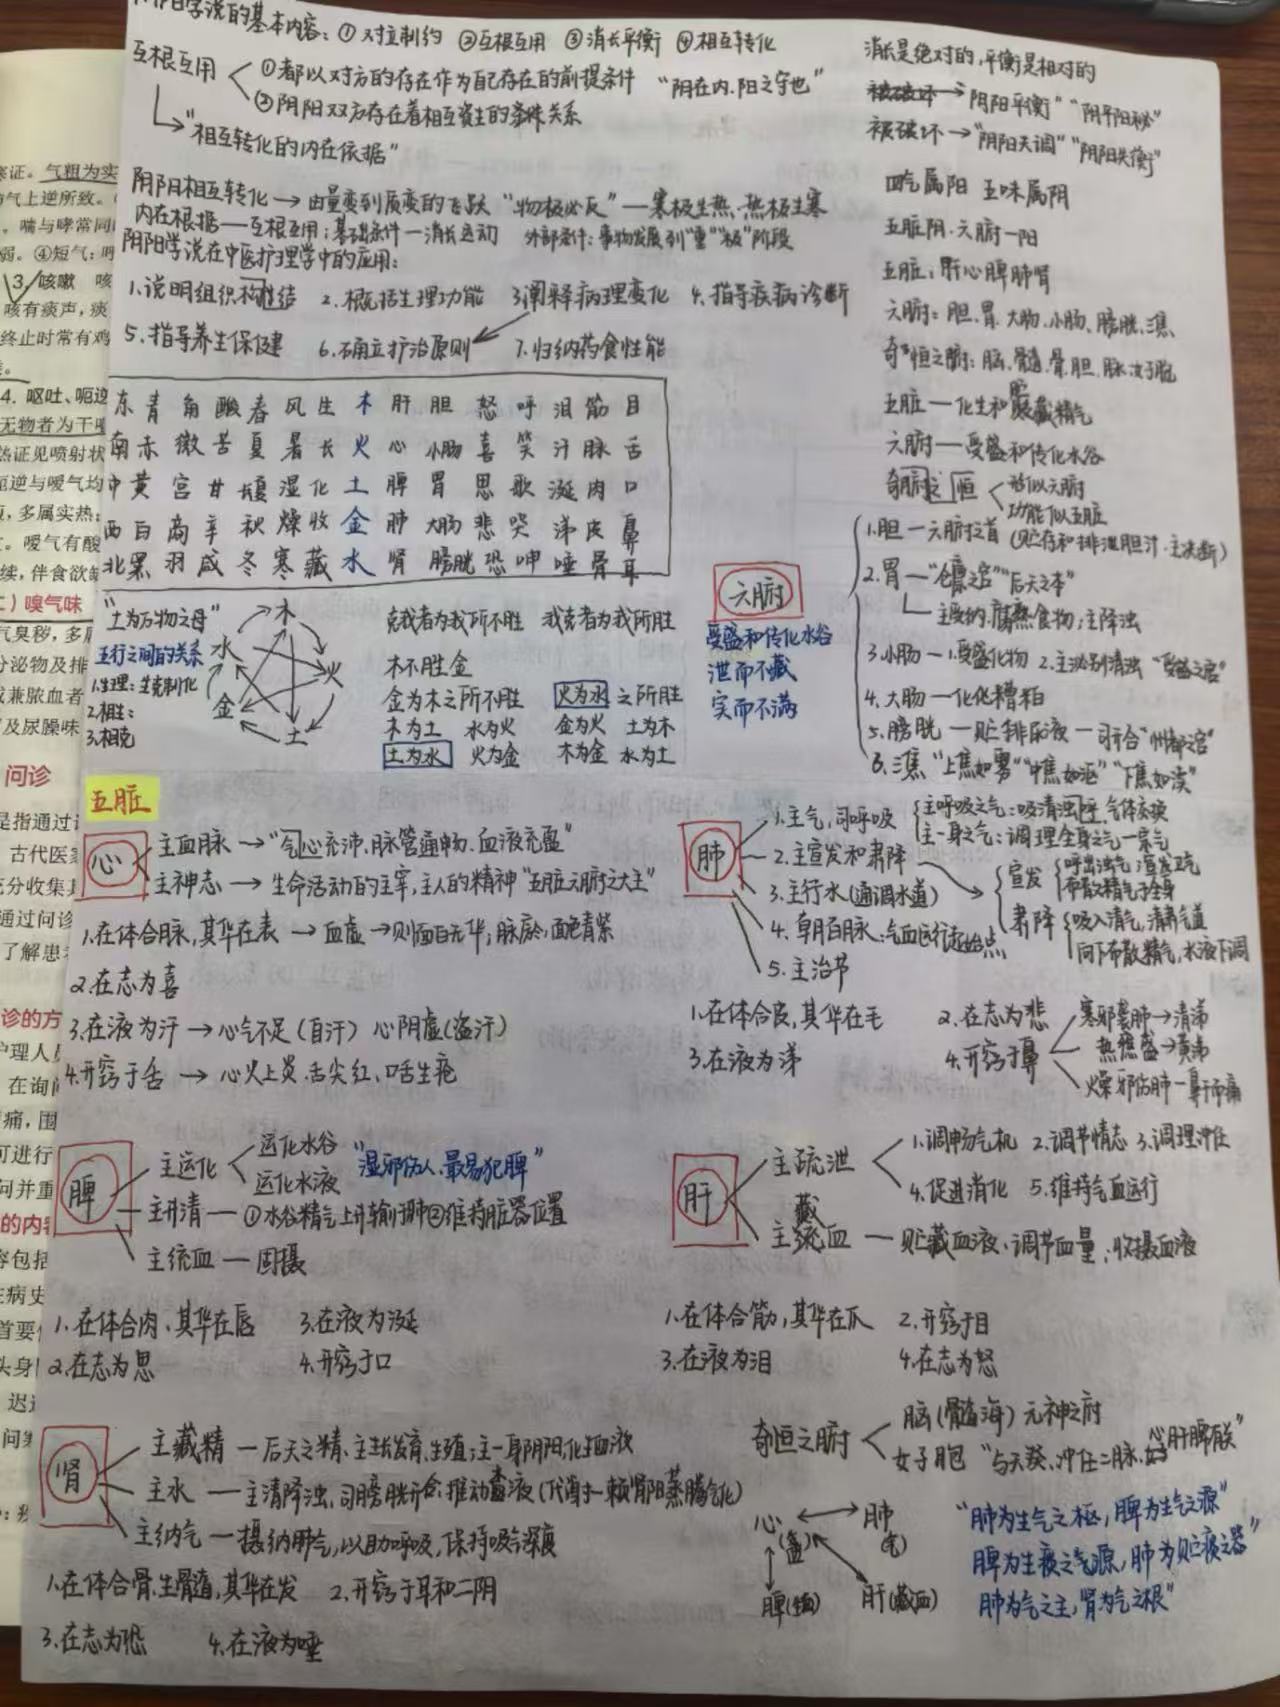 阴阳学说的基本内容：①对立制约 ②互根互用 ③消长平衡 ④相互转化
互根互用
①都以对方的存在作为自己存在的前提条件 “阴在内、阳之守也”
②阴阳双方存在着相互资生的亲缘关系
“相互转化的内在依据”
阴阳相互转化→由量变到质变的飞跃 “物极必反”—寒极生热、热极生寒
内在根据—互根互用；基础条件—消长运动 外部条件：事物发展到“重”“极”阶段
阴阳学说在中医护理学中的应用：
1.说明组织构造结 2.概括生理功能 3.阐释病理变化 4.指导疾病诊断
5.指导养生保健 6.确立护治原则 7.归纳药食性能
消长是绝对的，平衡是相对的
→阴阳平衡”“阴平阳秘”
被破坏→“阴阳失调”“阴阳失衡”
四气属阳 五味属阴
五脏阴、六腑—阳
五脏：肝心脾肺肾
六腑：胆、胃、大肠、小肠、膀胱、三焦
奇恒之腑：脑、髓、骨、胆、脉、女子胞
五脏—化生和贮藏精气
六腑—受盛和传化水谷
奇恒之腑
形似六腑
功能似五脏
东 青 角 酸 春 风 生 木 肝 胆 怒 呼 泪 筋 目
南 赤 徵 苦 夏 暑 长 火 心 小肠 喜 笑 汗 脉 舌
中 黄 宫 甘 长夏 湿 化 土 脾 胃 思 歌 涎 肉 口
西 白 商 辛 秋 燥 收 金 肺 大肠 悲 哭 涕 皮 鼻
北 黑 羽 咸 冬 寒 藏 水 肾 膀胱 恐 呻 唾 骨 耳
“土为万物之母”
五行之间的关系
1.生理：生克制化
2.相生：
3.相克
木
水
火
金
土
克我者为我所不胜 我克者为我所胜
木不胜金
金为木之所不胜 火为水之所胜
木为土 水为火 金为火 土为木
土为水 火为金 木为金 水为土
六腑
受盛和传化水谷
泄而不藏
实而不满
1.胆—六腑之首（贮存和排泄胆汁、主决断）
2.胃—“仓廪之官”“后天之本”
主受纳、腐熟食物；主降浊
3.小肠—1.受盛化物 2.主泌别清浊 “受盛之官”
4.大肠—化化糟粕
5.膀胱—贮排尿液—司开合“州都之官”
6.三焦“上焦如雾”“中焦如沤”“下焦如渎”
五脏
心
主血脉→“心气充沛、脉管通畅、血液充盈”
主神志→生命活动的主宰，主人的精神“五脏六腑之大主”
1.在体合脉，其华在表→血虚→则面白无华；脉瘀，面色青紫
2.在志为喜
3.在液为汗→心气不足（自汗） 心阴虚（盗汗）
4.开窍于舌→心火上炎、舌尖红、口舌生疮
肺
1.主气，司呼吸
主呼吸之气：吸清浊呼、气体交换
主一身之气：调理全身之气—宗气
2.主宣发和肃降
宣发
呼出浊气；宣发卫气
布散精气于全身
肃降
吸入清气，清肃气道
向下布散精气，水液下调
3.主行水（通调水道）
4.朝百脉：气血运行起始点
5.主治节
1.在体合皮，其华在毛 2.在志为悲
3.在液为涕 4.开窍于鼻
寒邪袭肺→清涕
→黄涕
火燥邪伤肺—鼻干而痛
脾
主运化
运化水谷
运化水液
“湿邪伤人、最易犯脾”
主升清—①水谷精气上升输于肺②维持脏器位置
主统血—固摄
1.在体合肉、其华在唇 3.在液为涎
2.在志为思 4.开窍于口
肝
主疏泄
1.调畅气机 2.调节情志 3.调理冲任
4.促进消化 5.维持气血运行
主藏血—贮藏血液、调节血量；收摄血液
1.在体合筋，其华在爪 2.开窍于目
3.在液为泪 4.在志为怒
肾
主藏精—后天之精、主生长发育、生殖；主一身阴阳，化生血液
主水—主清降浊，司膀胱开合，推动津液（代谢—赖肾阳蒸腾气化）
主纳气—摄纳肺气，以助呼吸，保持吸气深度
1.在体合骨、生髓，其华在发 2.开窍于耳和二阴
3.在志为恐 4.在液为唾
奇恒之腑
脑（髓海）元神之府
女子胞“与天癸、冲任二脉、心肝脾有关”
心 肺
（气）
脾 肝（藏血）
“肺为生气之枢，脾为生气之源”
脾为生痰之源，肺为贮痰之器
肺为气之主，肾为气之根”
3.咳嗽
4.呕吐、呃逆
嗅气味
问诊